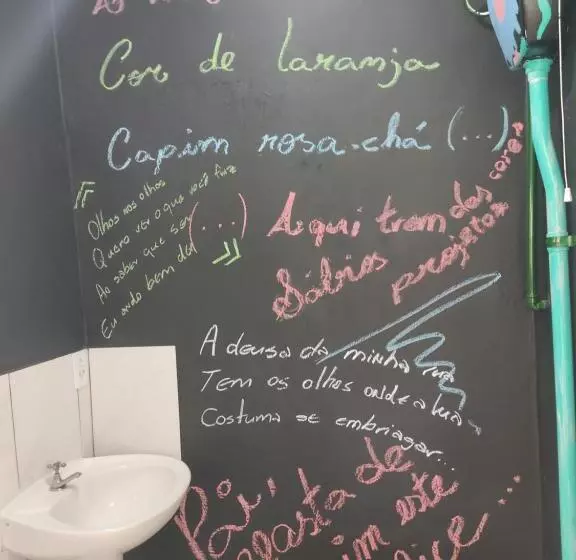 Cor de laranja
Capim rosa-chá (...)
"Olhos nos olhos
Quero ver o que você faz
Ao saber que sem
Eu ando bem de
(...)"
Aqui tram das cores
Sábios projetos
A deusa da minha rua
Tem os olhos onde a lua
Costuma se embriagar...
Pai
Afasta de
im este
lice...